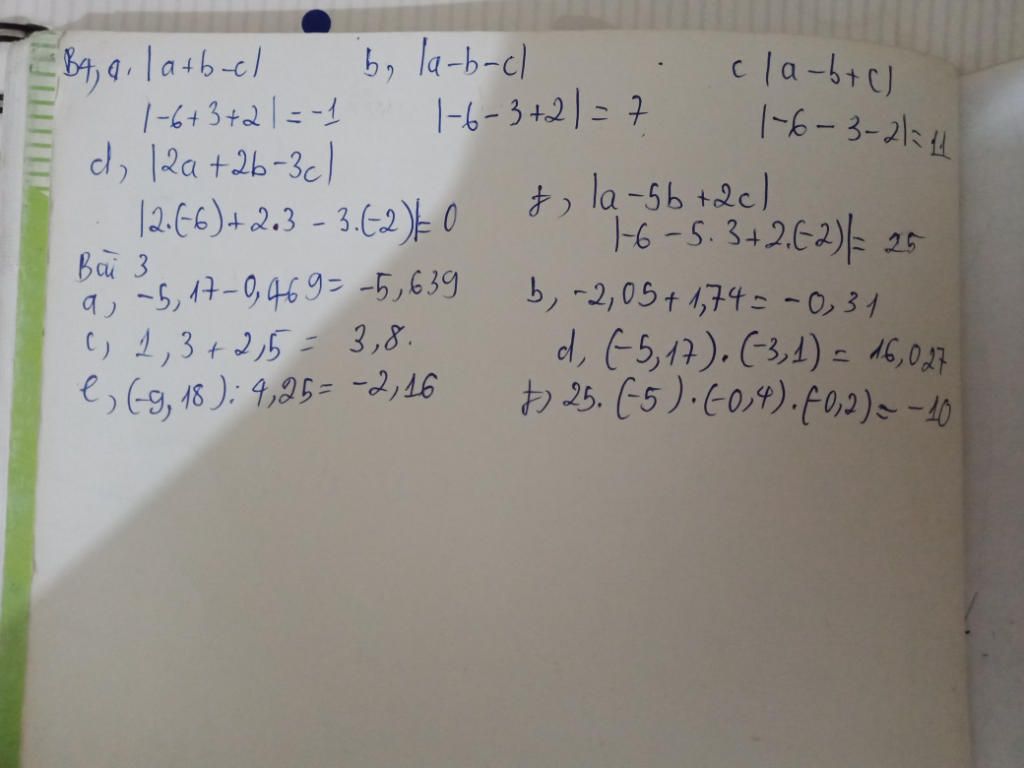 B4, a. |a+b-c| b, |a-b-c| c |a-b+c|
|-6+3+2| = -1 |-6-3+2| = 7 |-6-3-2| = 11
d, |2a+2b-3c|
|2.(-6)+2.3-3.(-2)| = 0
f, |a-5b+2c|
|-6-5.3+2.(-2)| = 25
Bài 3
a, -5,17-0,469 = -5,639 b, -2,05+1,74 = -0,31
c, 1,3+2,5 = 3,8. d, (-5,17).(-3,1) = 16,027
e, (-9,18):4,25 = -2,16 f, 25.(-5).(-0,4).(-0,2) = -10